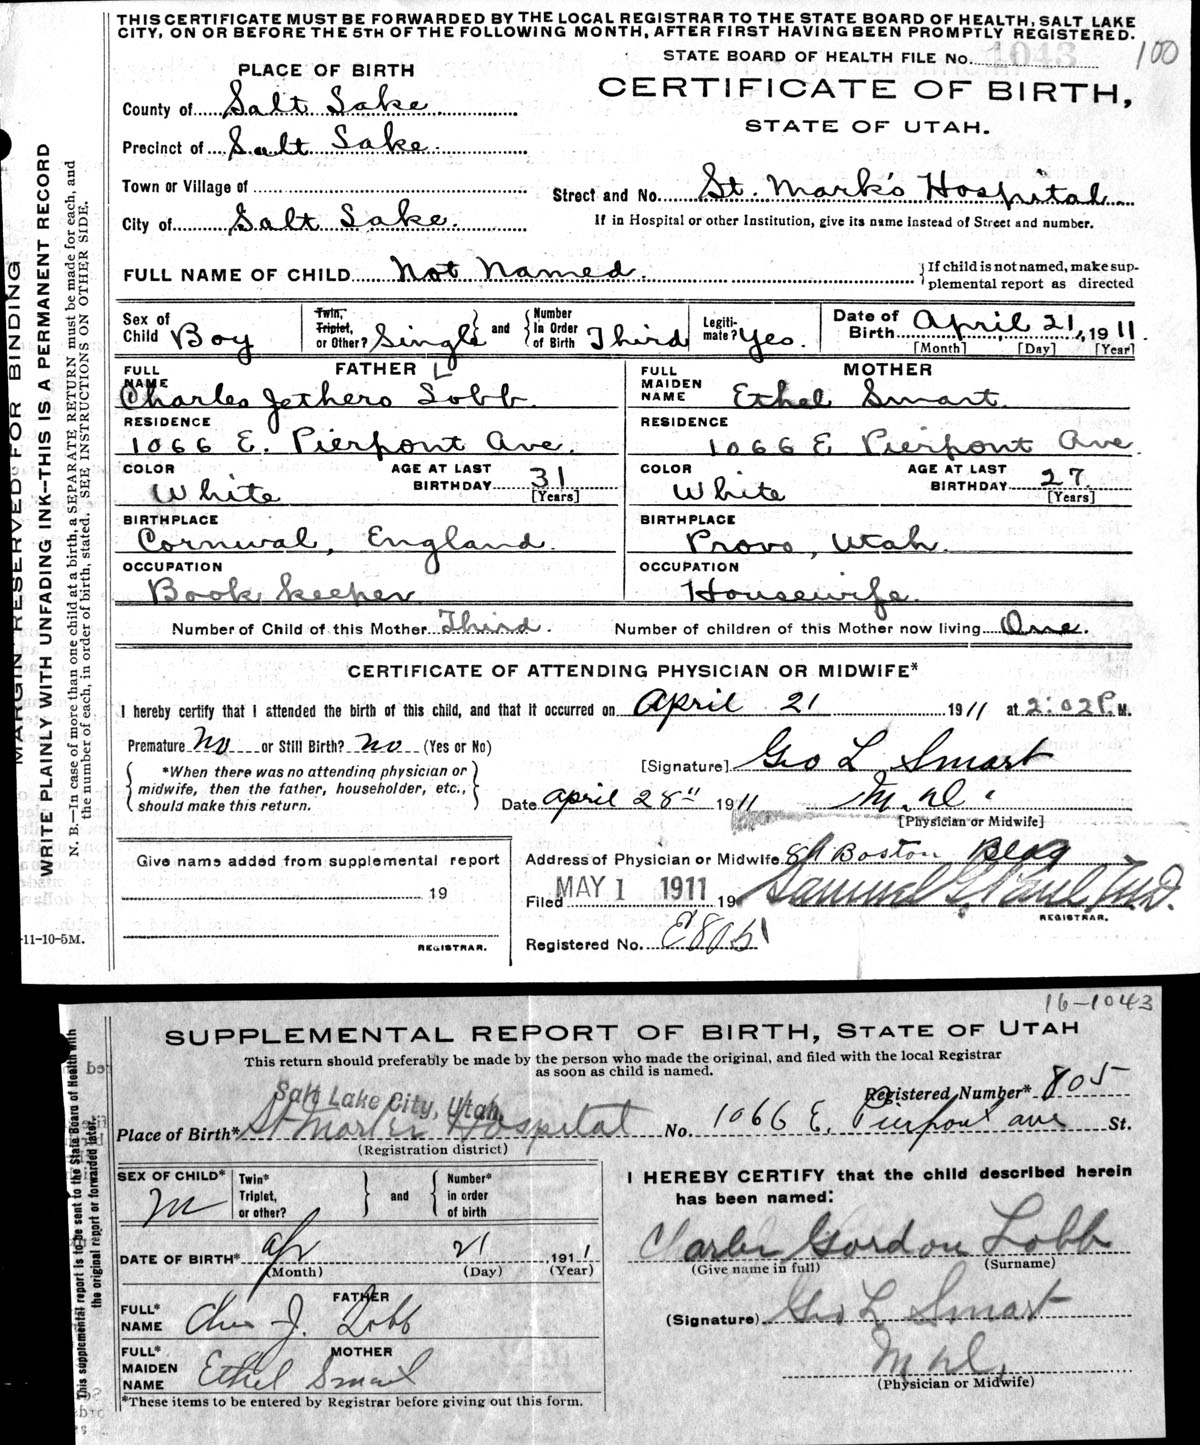 THIS CERTIFICATE MUST BE FORWARDED BY THE LOCAL REGISTRAR TO THE STATE BOARD OF HEALTH, SALT LAKE
CITY, ON OR BEFORE THE 5TH OF THE FOLLOWING MONTH, AFTER FIRST HAVING BEEN PROMPTLY REGISTERED.
STATE BOARD OF HEALTH FILE No. 1043 100
PLACE OF BIRTH
CERTIFICATE OF BIRTH,
STATE OF UTAH.
County of Salt Lake
Precinct of Salt Lake
Town or Village of
Street and No. St. Mark's Hospital
City of Salt Lake.
If in Hospital or other Institution, give its name instead of Street and number.
FULL NAME OF CHILD Not Named.
If child is not named, make sup-
plemental report as directed
Sex of Child Boy
Twin, Triplet, or Other? Single and Number In Order of Birth Third
Legiti-mate? Yes.
Date of Birth April 21, 1911.
[Month] [Day] [Year]
FATHER
FULL NAME Charles Jethero Lobb.
MOTHER
FULL MAIDEN NAME Ethel Smart.
RESIDENCE 1066 E. Pierpont Ave.
RESIDENCE 1066 E Pierpont Ave
COLOR White AGE AT LAST BIRTHDAY 31 [Years]
COLOR White AGE AT LAST BIRTHDAY 27. [Years]
BIRTHPLACE Cornwal, England.
BIRTHPLACE Provo, Utah.
OCCUPATION Book keeper
OCCUPATION Housewife.
Number of Child of this Mother Third. Number of children of this Mother now living One.
CERTIFICATE OF ATTENDING PHYSICIAN OR MIDWIFE*
I hereby certify that I attended the birth of this child, and that it occurred on April 21 1911 at 2:02 P. M.
Premature No or Still Birth? No (Yes or No)
*When there was no attending physician or
midwife, then the father, householder, etc.,
should make this return.
[Signature] Geo L Smart
Date April 28" 1911 M.D.
[Physician or Midwife]
Give name added from supplemental report
19
REGISTRAR.
Address of Physician or Midwife Boston Bldg
Filed MAY 1 1911 19 Samuel G. Paul, M.D.
REGISTRAR.
Registered No. E 805
MARGIN RESERVED FOR BINDING
WRITE PLAINLY WITH UNFADING INK—THIS IS A PERMANENT RECORD
N. B.—In case of more than one child at a birth, a SEPARATE RETURN must be made for each, and
the number of each, in order of birth, stated. SEE INSTRUCTIONS ON OTHER SIDE.
11-10-5M.
16-1043
SUPPLEMENTAL REPORT OF BIRTH, STATE OF UTAH
This return should preferably be made by the person who made the original, and filed with the local Registrar
as soon as child is named.
Salt Lake City, Utah.
Registered Number* 805
Place of Birth* St Marks Hospital No. 1066 E. Pierpont ave St.
(Registration district)
SEX OF CHILD* M
Twin* Triplet, or other? and Number* in order of birth
I HEREBY CERTIFY that the child described herein
has been named:
Charles Gordon Lobb
(Give name in full) (Surname)
DATE OF BIRTH* Apr 21 1911
(Month) (Day) (Year)
FATHER
FULL* NAME Chas J. Lobb
(Signature) Geo L Smart
MOTHER
FULL* MAIDEN NAME Ethel Smart
M.D.
(Physician or Midwife)
*These items to be entered by Registrar before giving out this form.
This supplemental report is to be sent to the State Board of Health with
the original report or forwarded later.